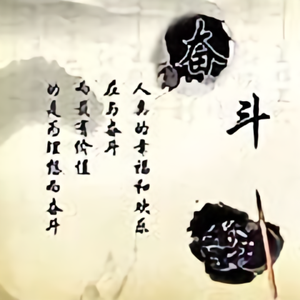 奋
斗
人真的幸福和欢乐
在与奋斗
而最有价值
的是为理想而奋斗